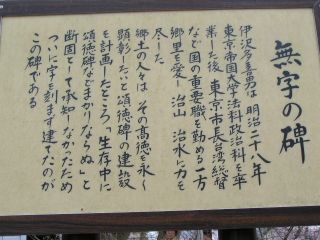 無字の碑
伊沢多喜男は 明治二十八年
東京帝国大学法科政治科を卒
業した後 東京市長台湾総督
など国の重要職を勤める一方
郷里を愛し 治山 治水に力を
尽した
郷土の人々は その高徳を永く
顕彰したいと頌徳碑の建設
を計画したところ「生存中に
頌徳碑などまかりならぬ」と
断固として承知しなかったため
ついに字を刻まず建てたのが
この碑である